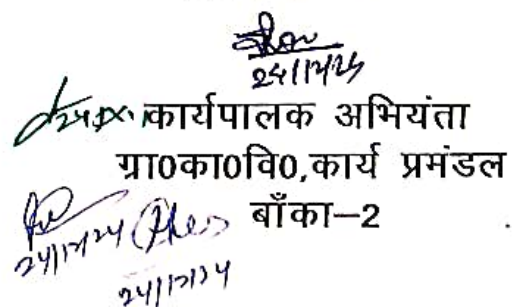 24/12/24
कार्यपालक अभियंता
ग्रा0का0वि0,कार्य प्रमंडल
बाँका–2
24/12/24
24/12/24